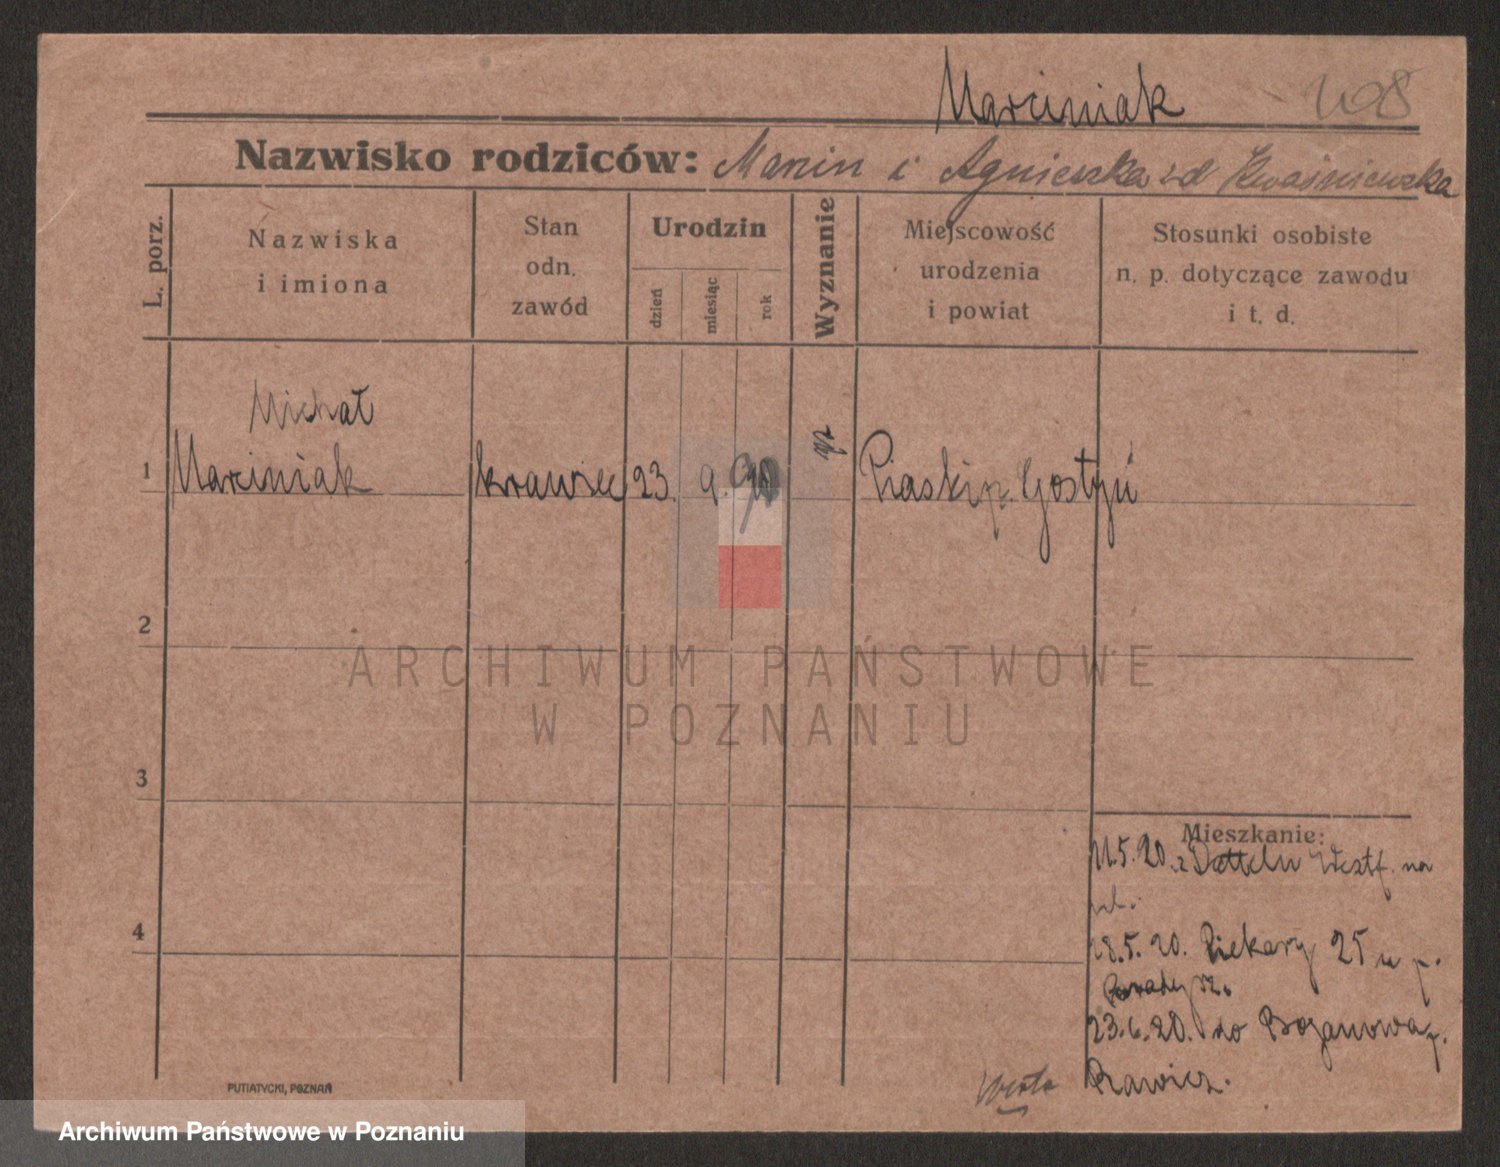 Marciniak
Nazwisko rodziców: Marcin i Agnieszka zd Kwaśniewska
L. porz.
Nazwiska
i imiona
Stan
odn.
zawód
Urodzin
dzień
miesiąc
rok
Wyznanie
Miejscowość
urodzenia
i powiat
Stosunki osobiste
n. p. dotyczące zawodu
i t. d.
Michał
1 Marciniak krawiec 23. 9. 90 Piaski p. Gostyń
2
ARCHIWUM PAŃSTWOWE
W POZNANIU
3
Mieszkanie:
21.5.20. z Datteln Westf. na
4
28.5.20. Piekary 25 u p.
23.6.20. do Bojanowa p.
Rawicz.
PUTIATYCKI, POZNAŃ
Archiwum Państwowe w Poznaniu